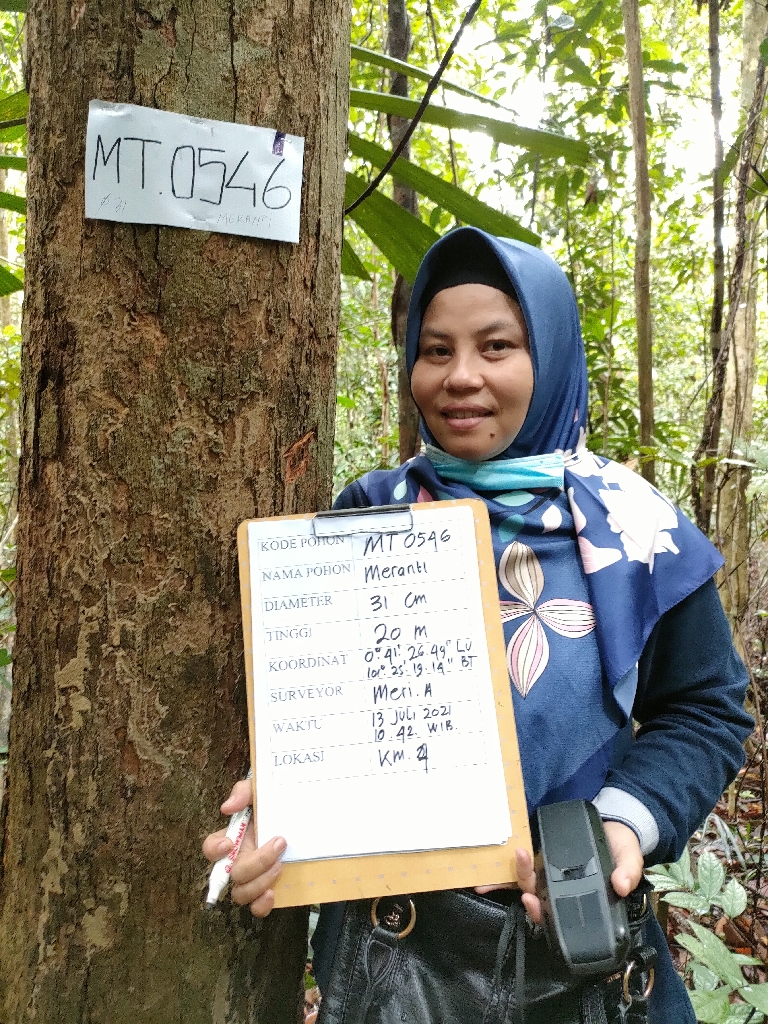 MT.0546
Ø 31 MERANTI
KODE POHON MT 0546
NAMA POHON Meranti
DIAMETER 31 cm
TINGGI 20 m
KOORDINAT 0° 41' 26.49" LU
101° 25' 19.14" BT
SURVEYOR Meri. A
WAKTU 13 Juli 2021
10.42 WIB.
LOKASI KM. 4